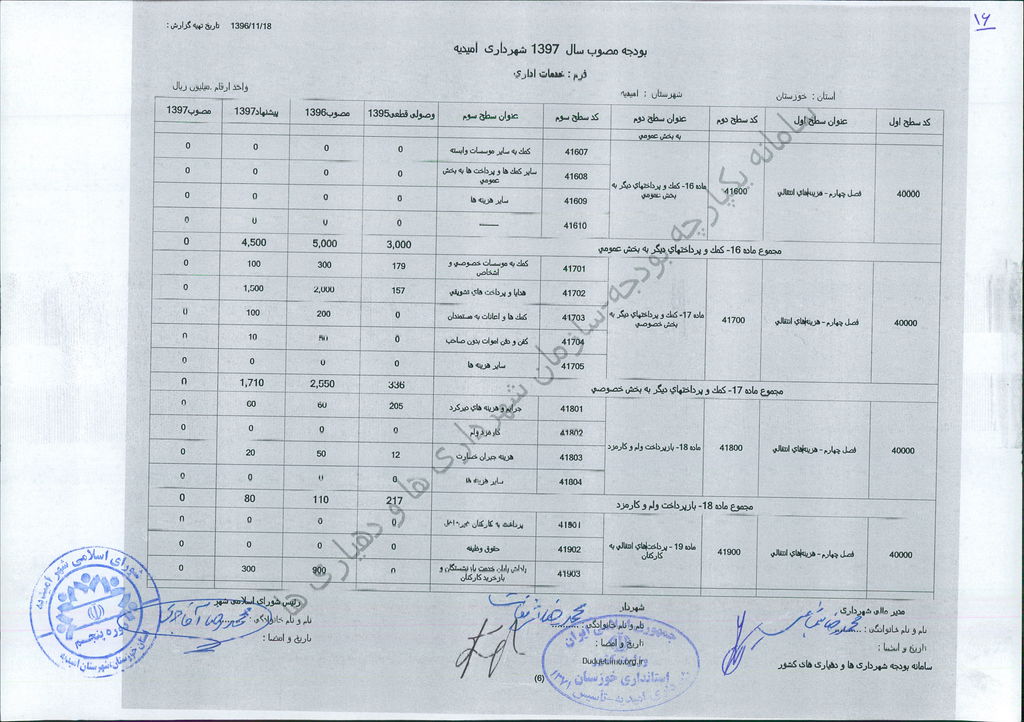 ۱۶
تاریخ تهیه گزارش : 1396/11/18
بودجه مصوب سال 1397 شهرداری امیدیه
فرم : خدمات اداری
استان : خوزستان شهرستان : امیدیه واحد ارقام .میلیون ریال
کد سطح اول عنوان سطح اول کد سطح دوم عنوان سطح دوم کد سطح سوم عنوان سطح سوم وصولی قطعی1395 مصوب1396 پیشنهاد1397 مصوب1397
به بخش عمومی
40000 فصل چهارم - هزینه‌های انتقالی 41600 ماده 16- کمک و پرداختهای دیگر به بخش عمومی
41607 کمک به سایر موسسات وابسته 0 0 0 0
41608 سایر کمک ها و پرداخت ها به بخش عمومی 0 0 0 0
41609 سایر هزینه ها 0 0 0 0
41610 ------ 0 0 0 0
مجموع ماده 16- کمک و پرداختهای دیگر به بخش عمومی 3,000 5,000 4,500 0
40000 فصل چهارم - هزینه‌های انتقالی 41700 ماده 17- کمک و پرداختهای دیگر به بخش خصوصی
41701 کمک به موسسات خصوصی و اشخاص 179 300 100 0
41702 هدایا و پرداخت های تشویقی 157 2,000 1,500 0
41703 کمک ها و اعانات به مستمندان 0 200 100 0
41704 کفن و دفن اموات بدون صاحب 0 50 10 0
41705 سایر هزینه ها 0 0 0 0
مجموع ماده 17- کمک و پرداختهای دیگر به بخش خصوصی 336 2,550 1,710 0
40000 فصل چهارم - هزینه‌های انتقالی 41800 ماده 18- بازپرداخت وام و کارمزد
41801 جرایم و هزینه های دیرکرد 205 60 60 0
41802 کارمزد وام 0 0 0 0
41803 هزینه جبران خسارت 12 50 20 0
41804 سایر هزینه ها 0 0 0 0
مجموع ماده 18- بازپرداخت وام و کارمزد 217 110 80 0
40000 فصل چهارم - هزینه‌های انتقالی 41900 ماده 19 - پرداختهای انتقالی به کارکنان
41901 پرداخت به کارکنان 0 0 0 0
41902 حقوق وظیفه 0 0 0 0
41903 پاداش پایان خدمت بازنشستگان و بازخرید کارکنان 0 900 300 0
سامانه یکپارچه بودجه-سازمان شهرداری ها و دهیاری ها
مدیر مالی شهرداری شهردار رئیس شورای اسلامی شهر
نام و نام خانوادگی : نام و نام خانوادگی : نام و نام خانوادگی :
تاریخ و امضا : تاریخ و امضا : تاریخ و امضا :
سامانه بودجه شهرداری ها و دهیاری های کشور
Budget.imo.org.ir
(6)
شورای اسلامی شهر امیدیه
دوره پنجم
استان خوزستان،شهرستان امیدیه
جمهوری اسلامی ایران
وزارت کشور
استانداری خوزستان